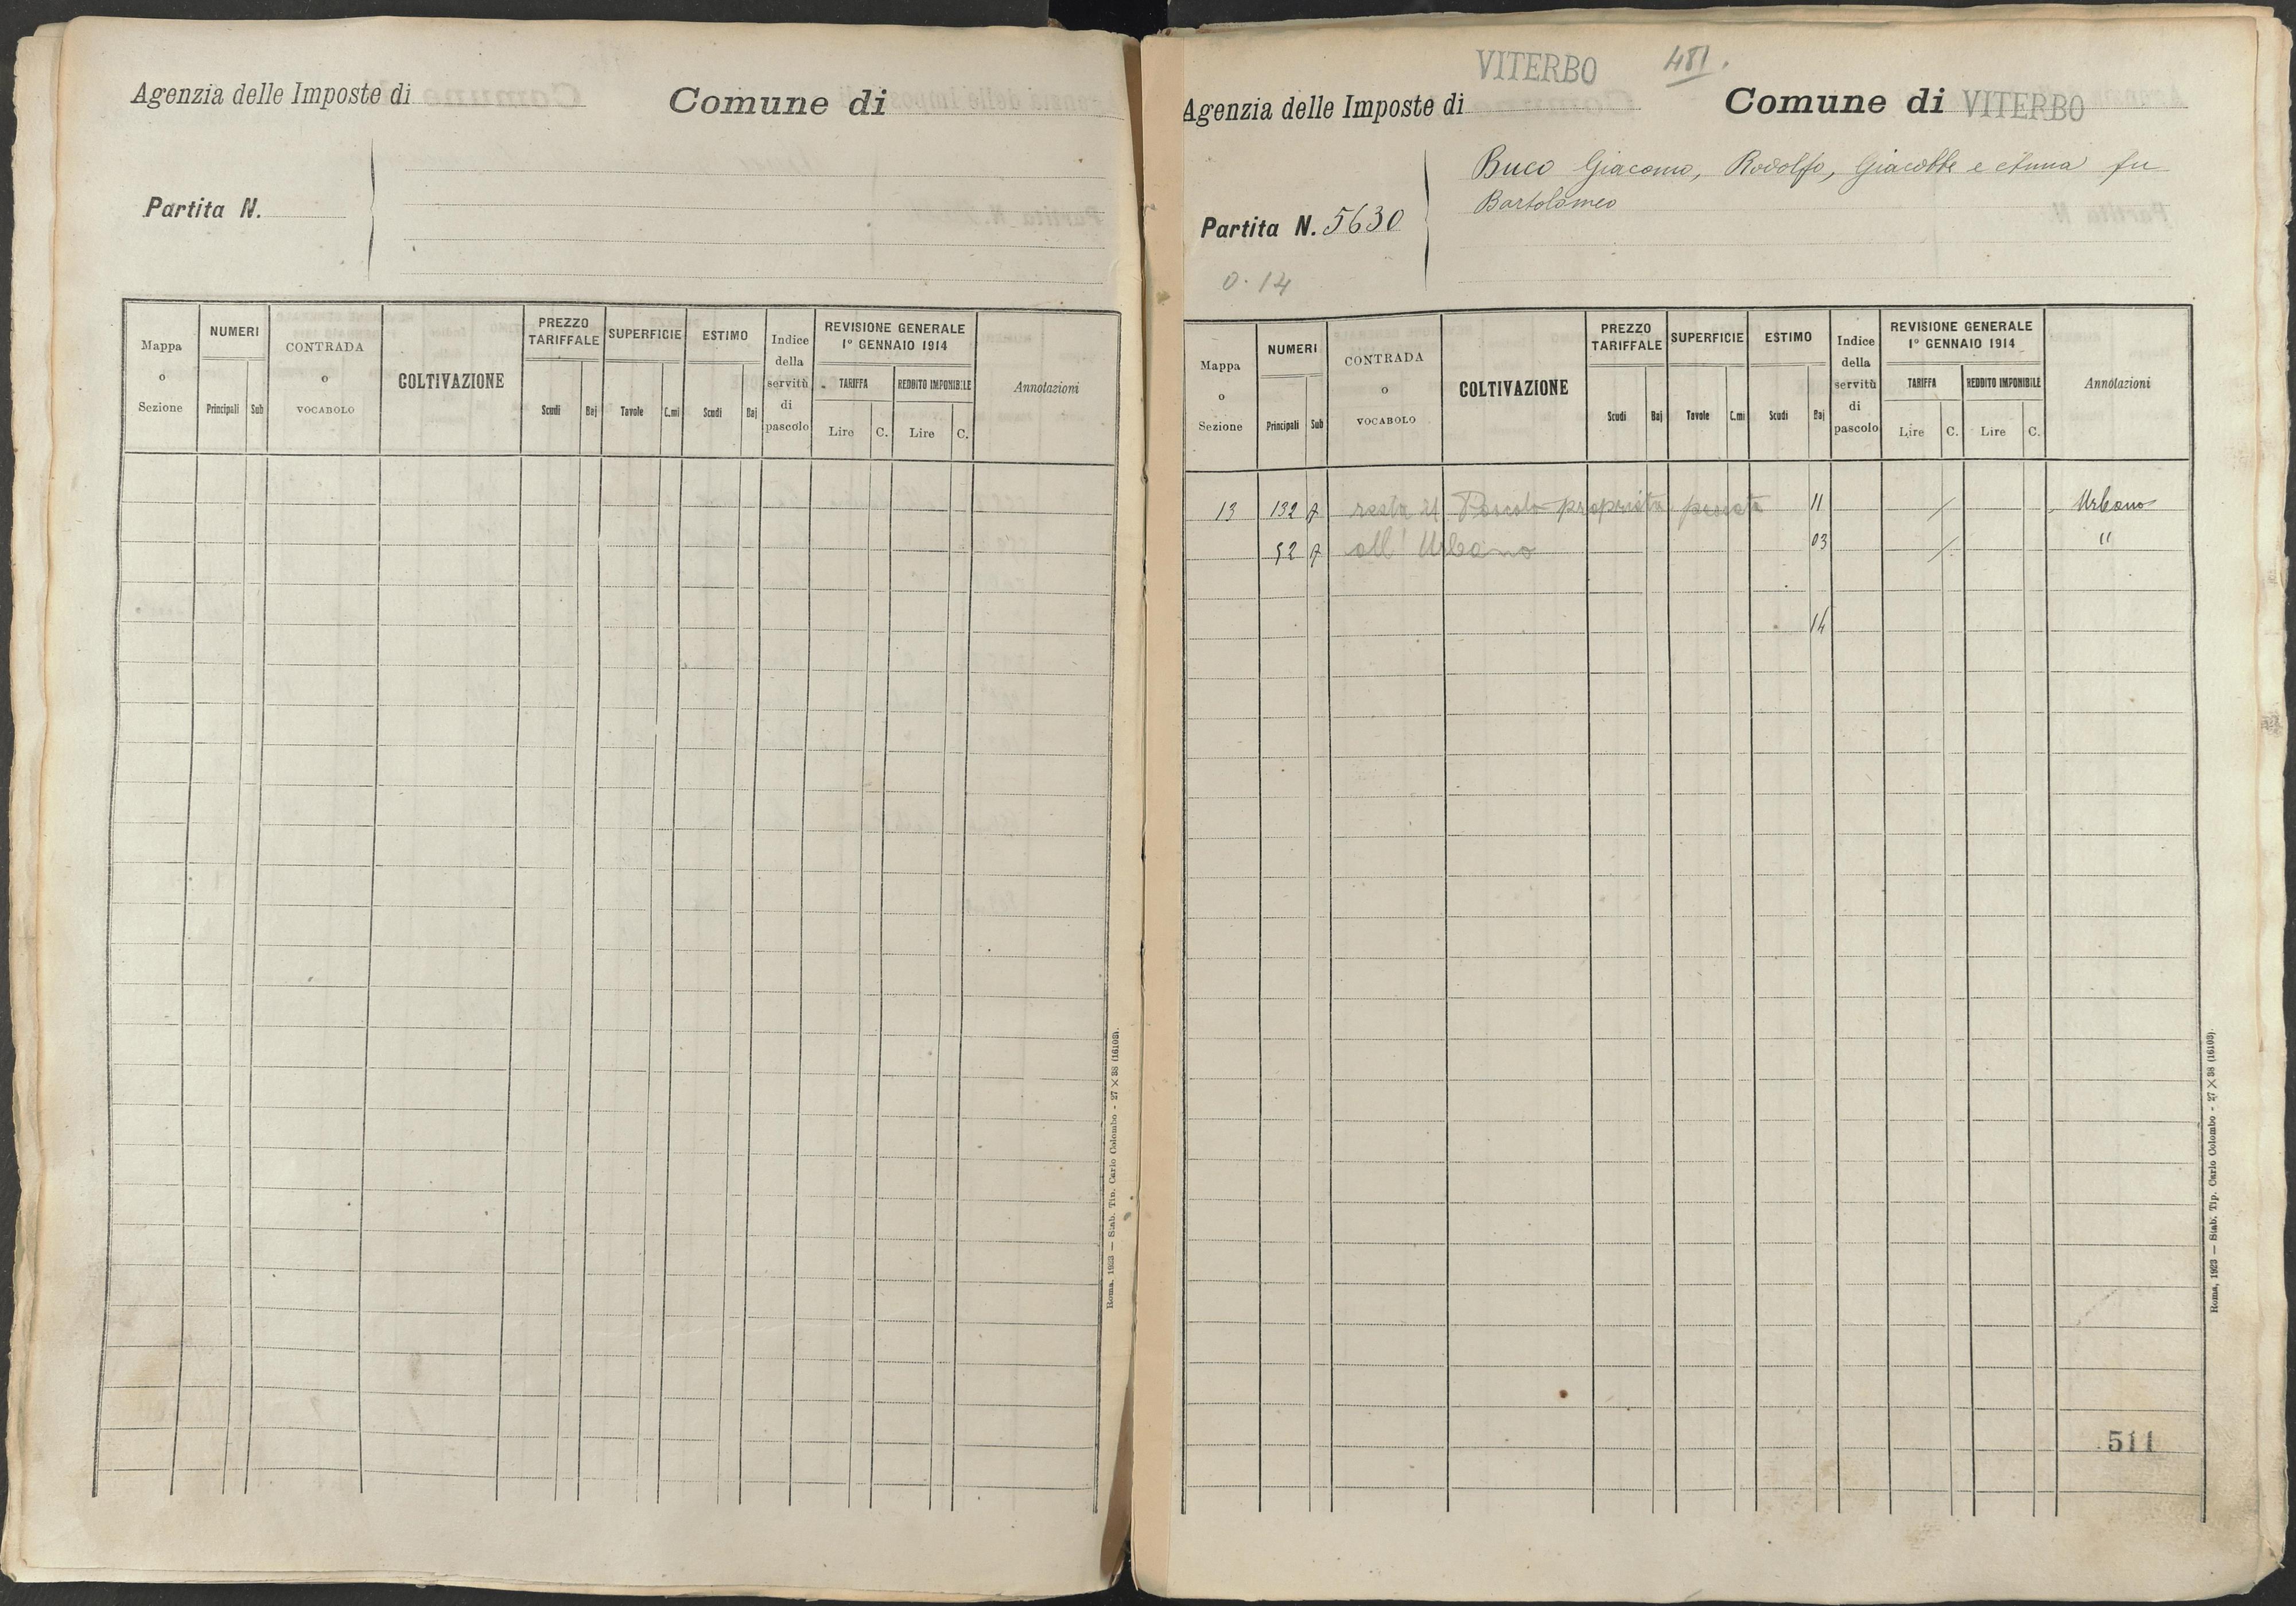 Agenzia delle Imposte di
Comune di
Partita N.
Mappa o Sezione
NUMERI
Principali Sub
CONTRADA o VOCABOLO
COLTIVAZIONE
PREZZO TARIFFALE
Scudi Baj
SUPERFICIE
Tavole C.mi
ESTIMO
Scudi Baj
Indice della servitù di pascolo
REVISIONE GENERALE
1° GENNAIO 1914
TARIFFA REDDITO IMPONIBILE
Lire C. Lire C.
Annotazioni
Roma, 1923 — Stab. Tip. Carlo Colombo - 27 × 38 (16103).
VITERBO 481.
Agenzia delle Imposte di
Comune di VITERBO
Buco Giacomo, Rodolfo, Giacobbe e Anna fu
Bartolomeo
Partita N. 5630
0.14
Mappa o Sezione
NUMERI
Principali Sub
CONTRADA o VOCABOLO
COLTIVAZIONE
PREZZO TARIFFALE
Scudi Baj
SUPERFICIE
Tavole C.mi
ESTIMO
Scudi Baj
Indice della servitù di pascolo
REVISIONE GENERALE
1° GENNAIO 1914
TARIFFA REDDITO IMPONIBILE
Lire C. Lire C.
Annotazioni
13 132 resta il Pascolo proprietà 11 / Urbano
52 all' Urbano 03 / "
14
511
Roma, 1923 — Stab. Tip. Carlo Colombo - 27 × 38 (16103).